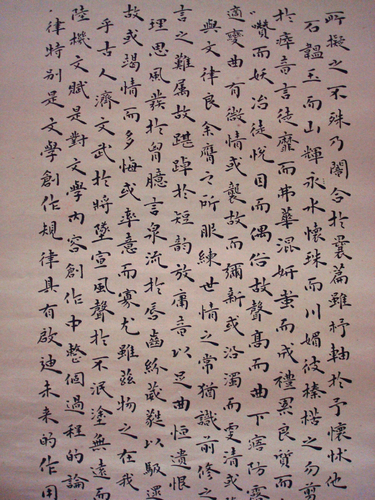 所擬之不殊乃闇合於曩篇雖杼軸於予懷怵他
石韞玉而山輝永水懷珠而川媚彼榛楛之勿剪
於瘁音言徒靡而弗華混妍蚩而成禮累良質而
囋而妖冶徒悅目而偶俗故聲高而曲下寤防露
適變曲有微情或襲故而彌新或沿濁而更清或
與文律良余膺之所服練世情之常猶識前修之
言之難屬故踸踔於短韵放庸音以足曲恒遺恨
理思風發於胷臆言泉流於唇齒紛葳蕤以馺遝
故或竭情而多悔或率意而寡尤雖茲物之在我
乎古人濟文武於將墜宣風聲於不泯塗無遠而
陸機文賦是對文學內容創作中整個過程的論
律特别是文學創作規律具有啟迪未來的作用